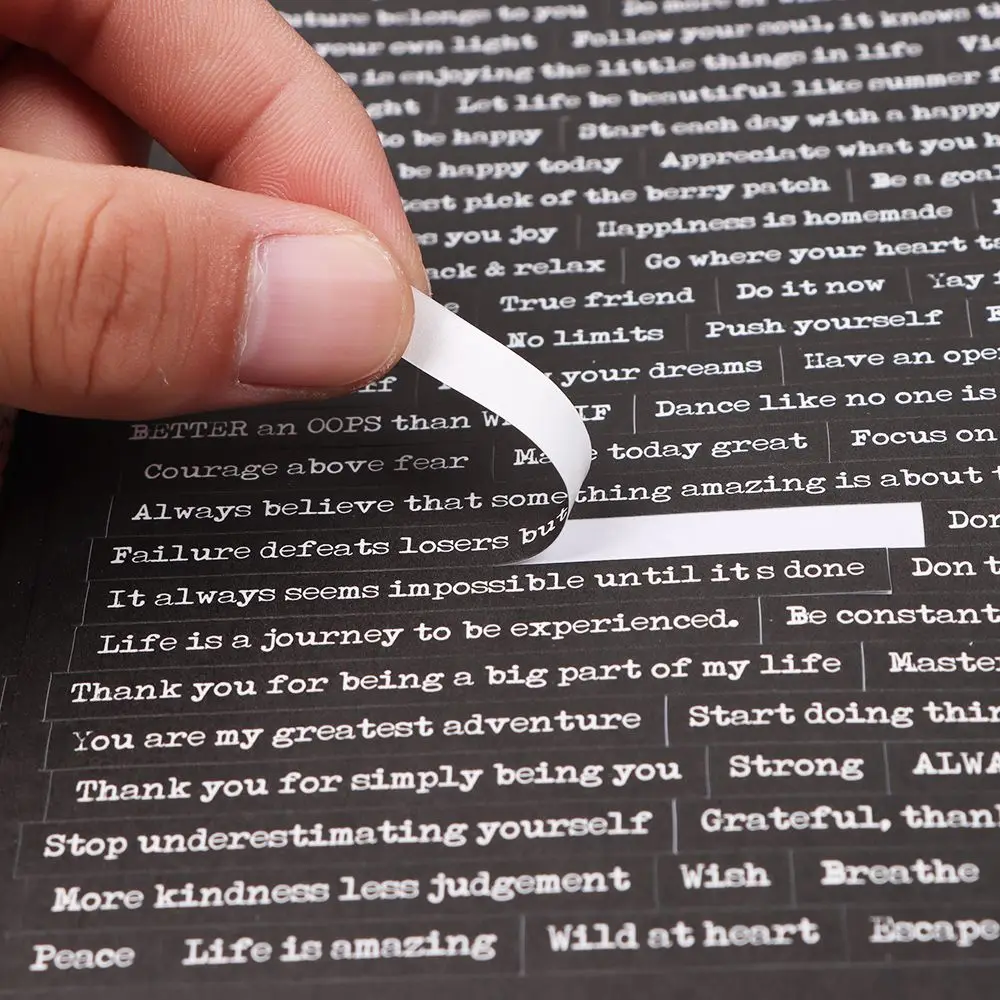 future belongs to you Do more of
your own light Follow your soul, it knows
is enjoying the little things in life
Let life be beautiful like summer
to be happy Start each day with a happy
be happy today Appreciate what you
pick of the berry patch Be a goal
you joy Happiness is homemade
& relax Go where your heart
True friend Do it now Yay
No limits Push yourself
your dreams Have an open
BETTER an OOPS than IF Dance like no one is
Courage above fear today great Focus on
Always believe that something amazing is about
Failure defeats losers but Don
It always seems impossible until its done Don t
Life is a journey to be experienced. Be constant
Thank you for being a big part of my life Master
You are my greatest adventure Start doing thin
Thank you for simply being you Strong ALWA
Stop underestimating yourself Grateful, thank
More kindness less judgement Wish Breathe
Peace Life is amazing Wild at heart Escape